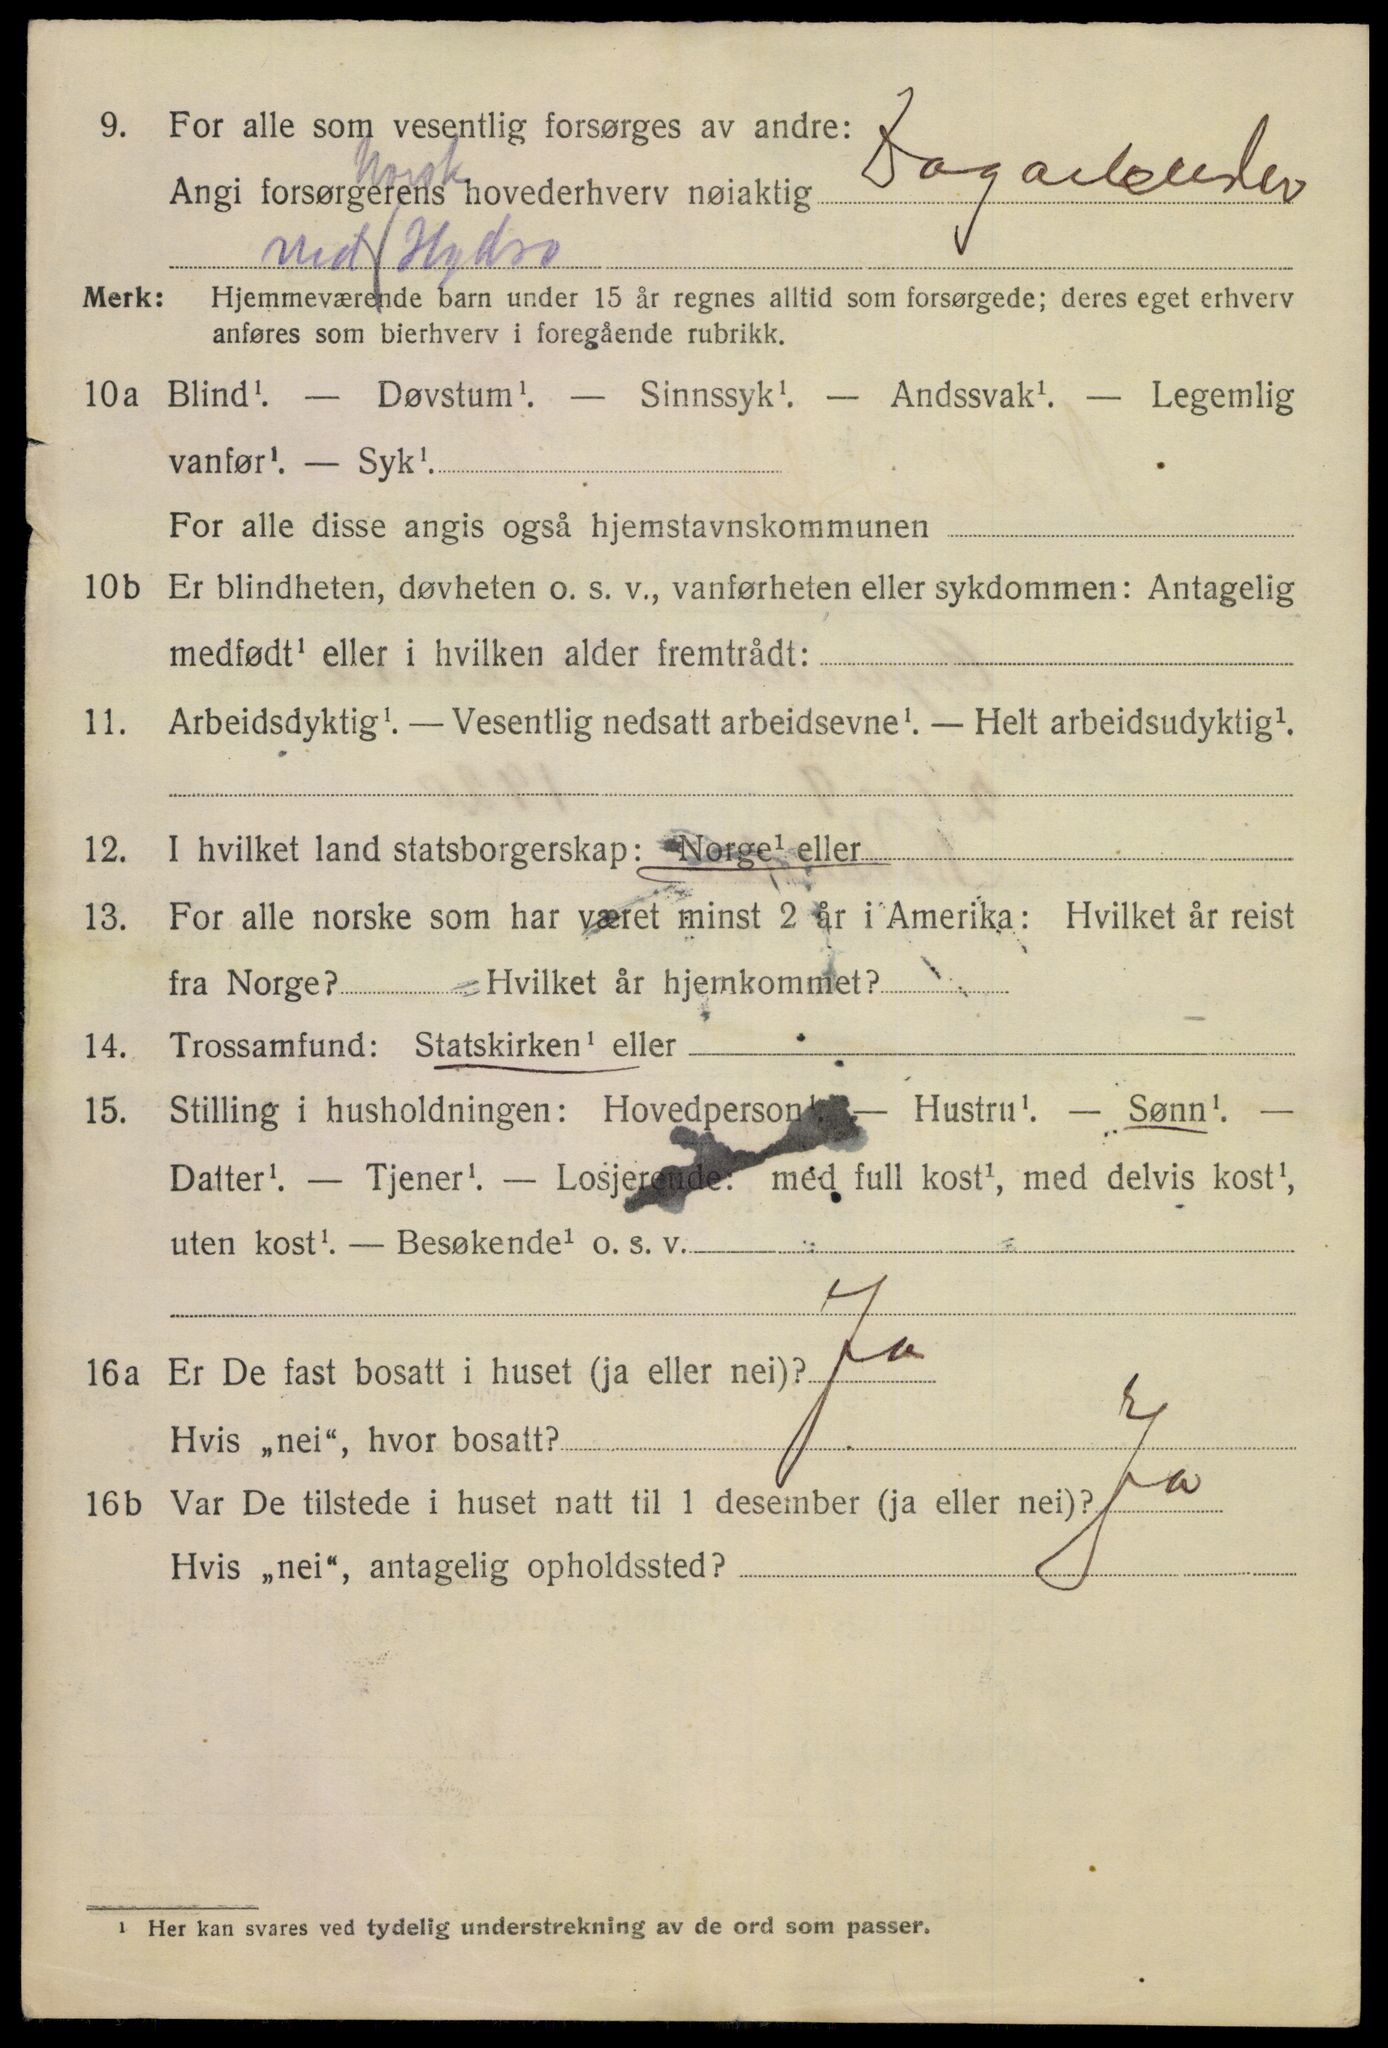 9. For alle som vesentlig forsørges av andre:
Angi forsørgerens hovederhverv nøiaktig Dagarbeider
ved Norsk Hydro
Merk: Hjemmeværende barn under 15 år regnes alltid som forsørgede; deres eget erhverv
anføres som bierhverv i foregående rubrikk.
10a Blind¹. — Døvstum¹. — Sinnssyk¹. — Andssvak¹. — Legemlig
vanfør¹. — Syk¹.
For alle disse angis også hjemstavnskommunen
10b Er blindheten, døvheten o. s. v., vanførheten eller sykdommen: Antagelig
medfødt¹ eller i hvilken alder fremtrådt:
11. Arbeidsdyktig¹. — Vesentlig nedsatt arbeidsevne¹. — Helt arbeidsudyktig¹.
12. I hvilket land statsborgerskap: Norge¹ eller
13. For alle norske som har været minst 2 år i Amerika: Hvilket år reist
fra Norge? Hvilket år hjemkommet?
14. Trossamfund: Statskirken¹ eller
15. Stilling i husholdningen: Hovedperson¹. — Hustru¹. — Sønn¹. —
Datter¹. — Tjener¹. — Losjerende: med full kost¹, med delvis kost¹,
uten kost¹. — Besøkende¹ o. s. v.
16a Er De fast bosatt i huset (ja eller nei)? Ja
Hvis „nei“, hvor bosatt?
16b Var De tilstede i huset natt til 1 desember (ja eller nei)? Ja
Hvis „nei“, antagelig opholdssted?
¹ Her kan svares ved tydelig understrekning av de ord som passer.